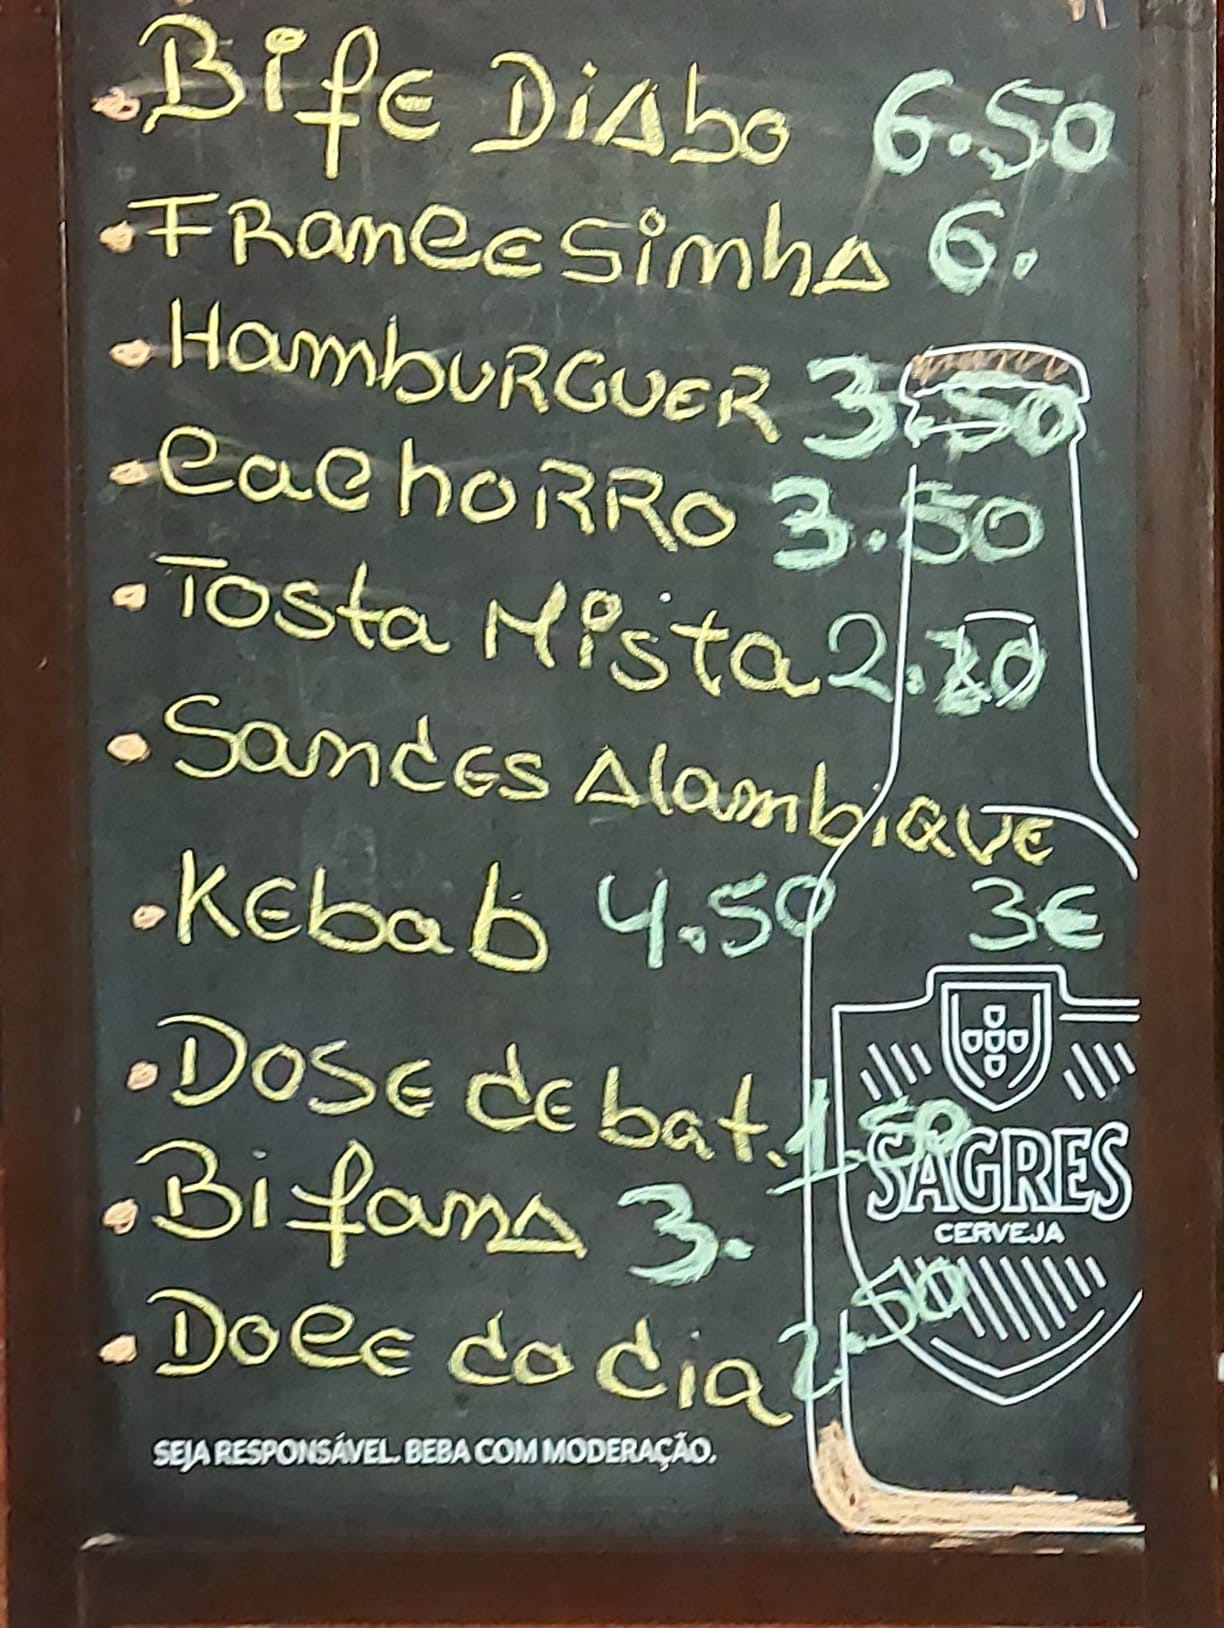 • Bife Diabo 6.50
• Francesinha 6.
• Hamburguer 3.50
• Cachorro 3.50
• Tosta Mista
• Sandes Alambique
3€
• Kebab 4.50
• Dose de bat. 1.50
SAGRES
CERVEJA
• Bifana 3.
• Doce do dia 2.50
SEJA RESPONSÁVEL. BEBA COM MODERAÇÃO.